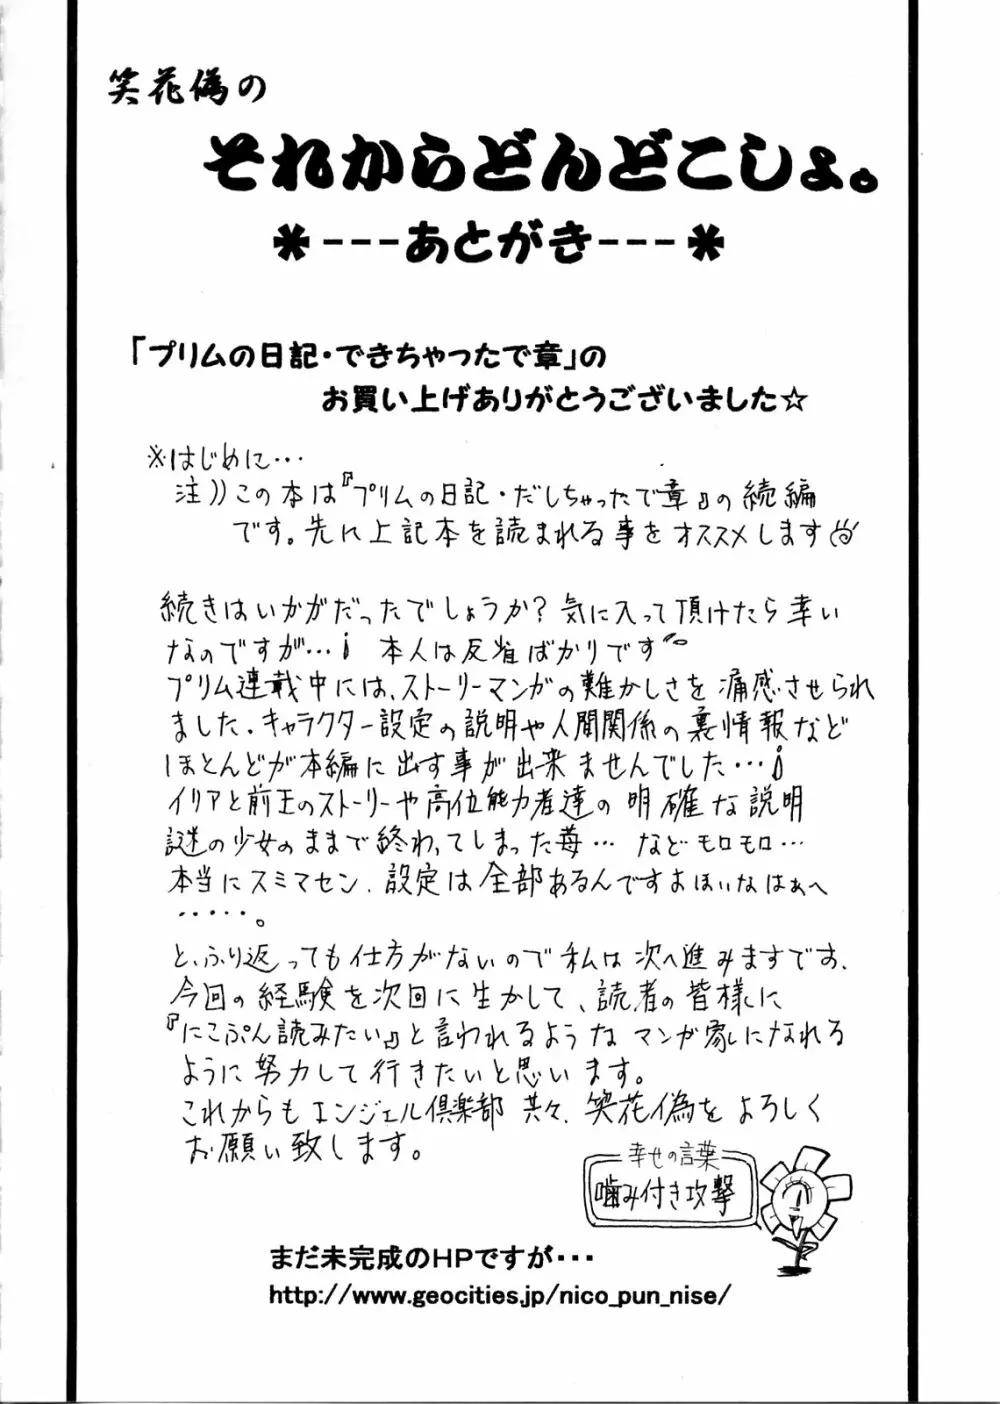 笑花偽の
それからどんどこしょ。
*---あとがき---*
「プリムの日記・できちゃったで章」の
お買い上げありがとうございました☆
※はじめに・・・
注))この本は『プリムの日記・だしちゃったで章』の続編
です。先に上記本を読まれる事をオススメします
続きはいかがだったでしょうか?気に入って頂けたら幸い
なのですが…¡ 本人は反省ばかりです
プリム連載中には、ストーリーマンガの難かしさを痛感させられ
ました。キャラクター設定の説明や人間関係の裏情報など
ほとんどが本編に出す事が出来ませんでした…¡
イリアと前王のストーリーや高位能力者達の明確な説明
謎の少女のままで終わってしまった苺… などモロモロ…
本当にスミマセン。設定は全部あるんですよほいなはぁへ
・・・・・。
と、ふり返っても仕方がないので私は次へ進みますです。
今回の経験を次回に生かして、読者の皆様に
『にこぷん読みたい』と言われるようなマンガ家になれる
ように努力して行きたいと思います。
これからもエンジェル倶楽部共々、笑花偽をよろしく
お願い致します。
幸せの言葉
噛み付き攻撃
まだ未完成のHPですが・・・
http://www.geocities.jp/nico_pun_nise/